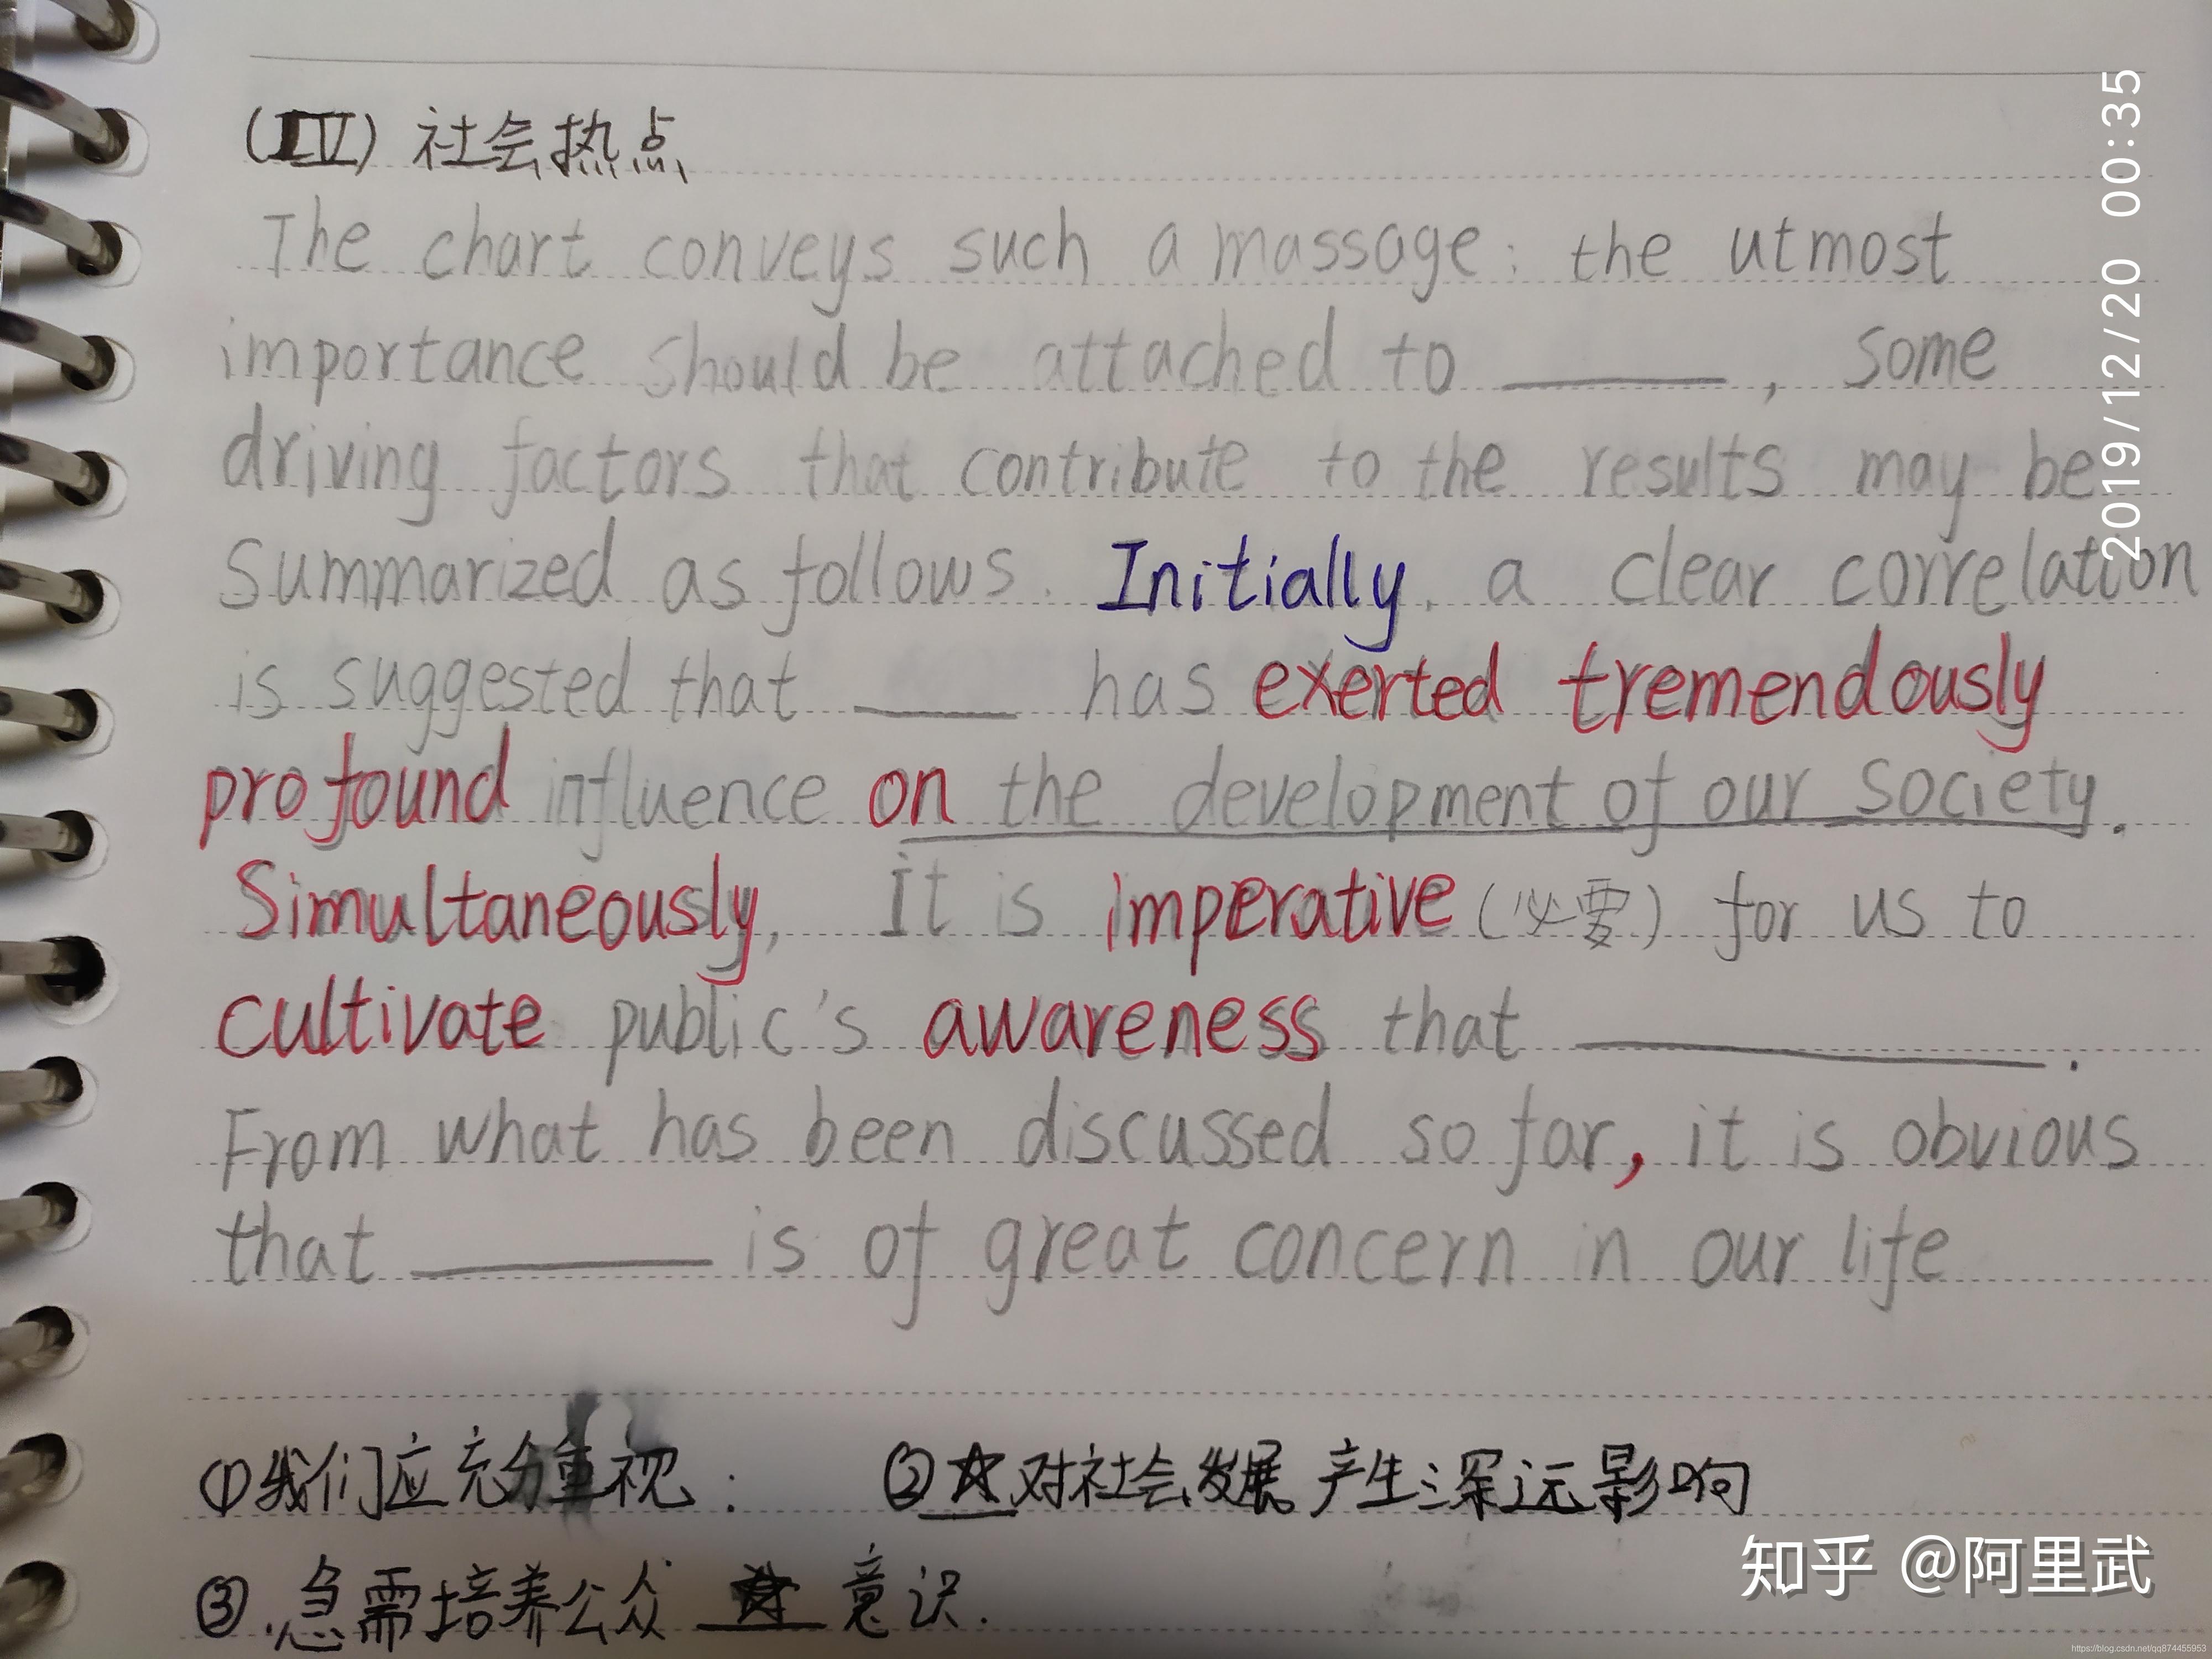 (IV) 社会热点
The chart conveys such a massage: the utmost
importance should be attached to ______, some
driving factors that contribute to the results may be
Summarized as follows. Initially, a clear correlation
is suggested that ____ has exerted tremendously
profound influence on the development of our society.
Simultaneously, it is imperative (必要) for us to
cultivate public's awareness that ____________.
From what has been discussed so far, it is obvious
that ________ is of great concern in our life
①我们应充分重视: ②☆对社会发展产生深远影响
③.急需培养公众 ☆ 意识.
2019/12/20 00:35
知乎 @阿里武
https://blog.csdn.net/qq874455953